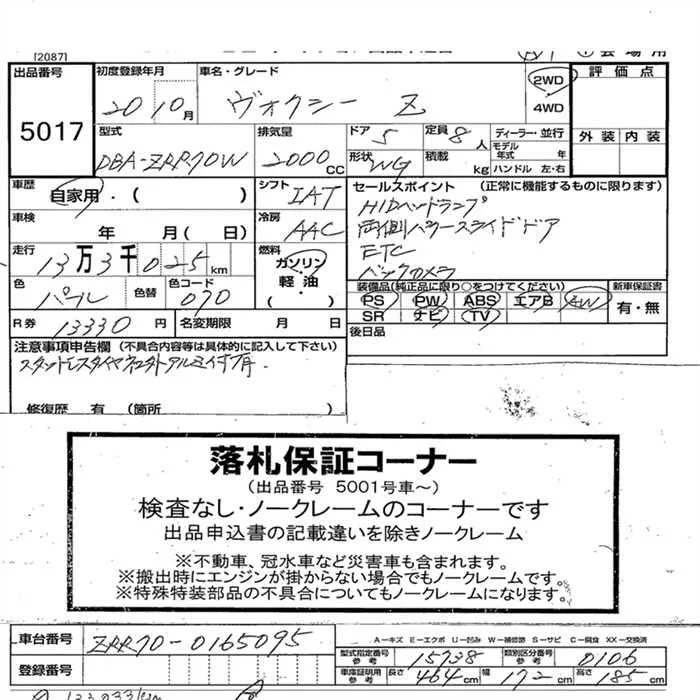 [2087]
出品番号 5017
初度登録年月 2010月
車名・グレード ヴォクシー Z
2WD
4WD
評価点
外装 内装
型式 DBA-ZRR70W
排気量 2000CC
ドア 5
定員 8人
形状 WG
積載 kg
ディーラー・並行
モデル年式 年
ハンドル 左・右
車歴 自家用・( )
シフト IAT
セールスポイント (正常に機能するものに限ります)
HIDヘッドランプ
両側パワースライドドア
ETC
バックカメラ
車検 年 月(日)
冷房 AAC
走行 13万3千025km
燃料 ガソリン・軽油・( )
色 パール
色替
色コード 070
装備品(純正品に限り○をつけてください)
PS PW ABS エアB AW
SR ナビ TV
新車保証書
有・無
R券 13330円
名変期限 月 日
後日品
注意事項申告欄 (不具合内容等は具体的に記入して下さい)
修復歴 有 (箇所
落札保証コーナー
(出品番号 5001号車～)
検査なし・ノークレームのコーナーです
出品申込書の記載違いを除きノークレーム
※不動車、冠水車など災害車も含まれます。
※搬出時にエンジンが掛からない場合でもノークレームです。
※特殊特装部品の不具合についてもノークレームになります。
車台番号 ZRR70-0165095
A-キズ E-エクボ U-凹み W-補修跡 S-サビ C-腐食 XX-交換済
型式指定番号 参考 15738
類別区分番号 参考 0106
登録番号
車庫証明用 参考 長さ 464cm 幅 172cm 高さ 185cm